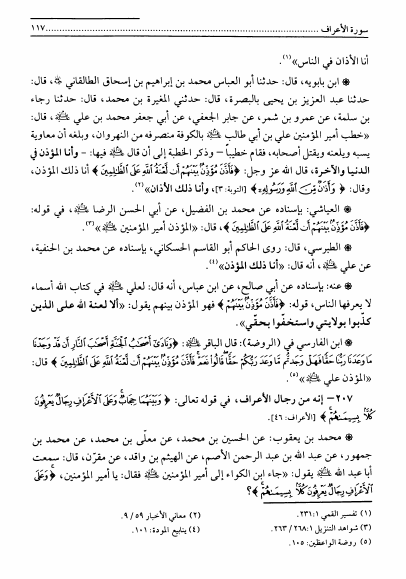 سورة الأعراف ........ ١١٧
أنا الأذان في الناس»(١).
● ابن بابويه، قال: حدثنا أبو العباس محمد بن إبراهيم بن إسحاق الطالقاني، قال:
حدثنا عبد العزيز بن يحيى بالبصرة، قال: حدثني المغيرة بن محمد، قال: حدثنا رجاء
بن سلمة، عن عمرو بن شمر، عن جابر الجعفي، عن أبي جعفر محمد بن علي، قال:
«خطب أمير المؤمنين علي بن أبي طالب بالكوفة منصرفه من النهروان، وبلغه أن معاوية
يسبه ويلعنه ويقتل أصحابه، فقام خطيباً – وذكر الخطبة إلى أن قال فيها: – وأنا المؤذن في
الدنيا والآخرة، قال الله عز وجل: ﴿فَأَذَّنَ مُؤَذِّنٌ بَيْنَهُمْ أَن لَّعْنَةُ اللَّهِ عَلَى الظَّالِمِينَ﴾ أنا ذلك المؤذن،
وقال: ﴿وَأَذَانٌ مِّنَ اللَّهِ وَرَسُولِهِ﴾ [التوبة: ٣]، وأنا ذلك الأذان»(٢).
● العياشي: بإسناده عن محمد بن الفضيل، عن أبي الحسن الرضا، في قوله:
﴿فَأَذَّنَ مُؤَذِّنٌ بَيْنَهُمْ أَن لَّعْنَةُ اللَّهِ عَلَى الظَّالِمِينَ﴾، قال: «المؤذن أمير المؤمنين»(٣).
● الطبرسي، قال: روى الحاكم أبو القاسم الحسكاني، بإسناده عن محمد بن الحنفية،
عن علي، أنه قال: «أنا ذلك المؤذن»(٤).
● عنه: بإسناده عن أبي صالح، عن ابن عباس، أنه قال: لعلي في كتاب الله أسماء
لا يعرفها الناس، قوله: ﴿فَأَذَّنَ مُؤَذِّنٌ بَيْنَهُمْ﴾ فهو المؤذن بينهم يقول: «ألا لعنة الله على الذين
كذبوا بولايتي واستخفوا بحقي».
● ابن الفارسي في (الروضة): قال الباقر: ﴿وَنَادَى أَصْحَابُ الْجَنَّةِ أَصْحَابَ النَّارِ أَن قَدْ وَجَدْنَا
مَا وَعَدَنَا رَبُّنَا حَقًّا فَهَلْ وَجَدتُّم مَّا وَعَدَ رَبُّكُمْ حَقًّا قَالُوا نَعَمْ فَأَذَّنَ مُؤَذِّنٌ بَيْنَهُمْ أَن لَّعْنَةُ اللَّهِ عَلَى الظَّالِمِينَ﴾ قال:
«المؤذن علي»(٥).
٢٠٧ – إنه من رجال الأعراف، في قوله تعالى: ﴿وَبَيْنَهُمَا حِجَابٌ وَعَلَى الْأَعْرَافِ رِجَالٌ يَعْرِفُونَ
كُلًّا بِسِيمَاهُمْ﴾ [الأعراف: ٤٦].
● محمد بن يعقوب: عن الحسين بن محمد، عن معلّى بن محمد، عن محمد بن
جمهور، عن عبد الله بن عبد الرحمن الأصم، عن الهيثم بن واقد، عن مقرّن، قال: سمعت
أبا عبد الله يقول: «جاء ابن الكواء إلى أمير المؤمنين فقال: يا أمير المؤمنين، ﴿وَعَلَى
الْأَعْرَافِ رِجَالٌ يَعْرِفُونَ كُلًّا بِسِيمَاهُمْ﴾؟
(١) تفسير القمي ١: ٢٣١. (٢) معاني الأخبار ٥٩ / ٩.
(٣) شواهد التنزيل ١: ٢٦٨ / ٢٦٣. (٤) ينابيع المودة: ١٠١.
(٥) روضة الواعظين: ١٠٥.